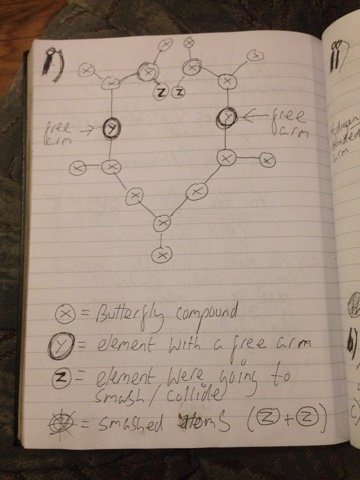 i)
ii)
X X
X X X X
Z Z
free arm → Y
Y ← free arm
X X X X
X X
X
X
X = Butterfly compound
Y = element with a free arm
Z = element were going to
smash/collide
= smashed atoms (Z + Z)
arm
b)
c)